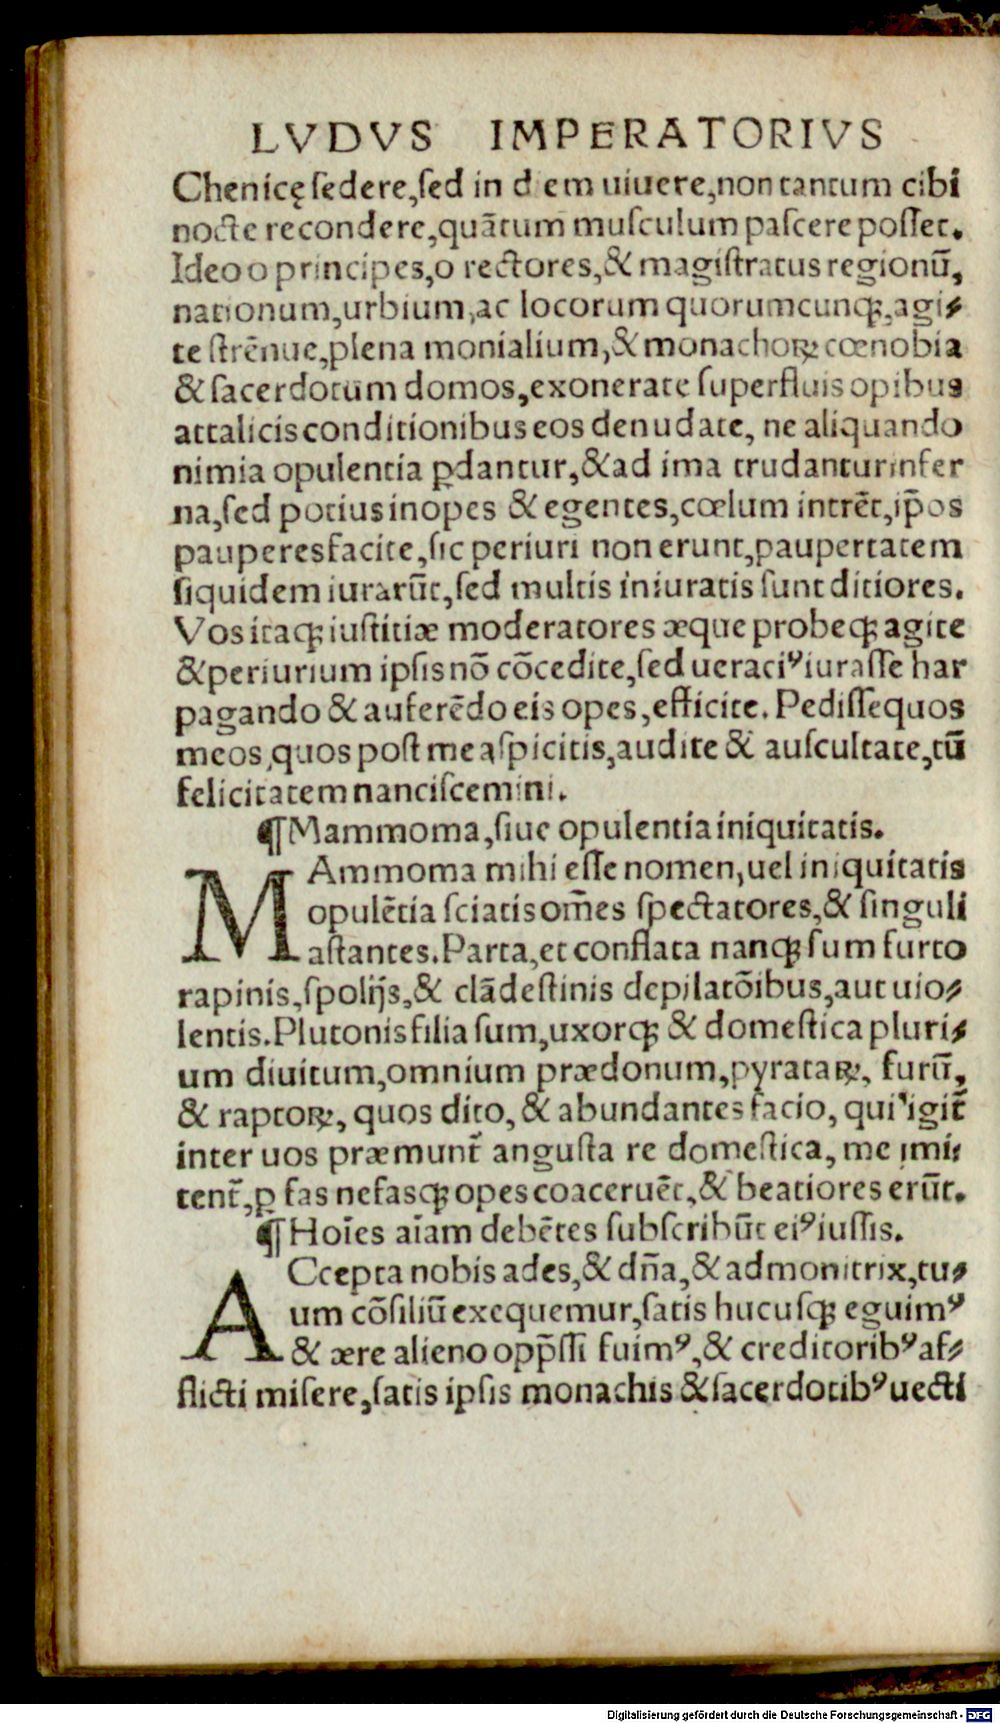 LVDVS IMPERATORIVS
Chenicę ſedere,ſed in d em uiuere,non tantum cibi
nocte recondere,quātum muſculum paſcere poſſet.
Ideo o principes,o rectores,& magiſtratus regionū,
nationum,urbium,ac locorum quorumcunq;,agi⸗
te ſtrēnue,plena monialium,& monachoꝝ cœnobia
& ſacerdotum domos,exonerate ſuperfluis opibus
attalicis conditionibus eos denudate, ne aliquando
nimia opulentia ꝑdantur,& ad ima trudantur infer
na,ſed potius inopes & egentes,cœlum intrēt,ip̄os
pauperes facite,ſic periuri non erunt,paupertatem
ſiquidem iurarūt,ſed multis iniuratis ſunt ditiores.
Vos itaq; iuſtitiæ moderatores æque probeq; agite
& periurium ipſis nō cōcedite,ſed ueraciꝰ iuraſſe har
pagando & auferēdo eis opes,efficite. Pediſſequos
meos,quos poſt me aſpicitis,audite & auſcultate,tū
felicitatem nanciſcemini.
¶Mammoma,ſiue opulentia iniquitatis.
MAmmoma mihi eſſe nomen,uel iniquitatis
opulētia ſciatis om̄es ſpectatores,& ſinguli
aſtantes.Parta,et conflata nanq; ſum furto
rapinis,ſpolijs,& clādeſtinis depilatōibus,aut uio⸗
lentis.Plutonis filia ſum,uxorq; & domeſtica pluri⸗
um diuitum,omnium prædonum,pyrataꝝ, furū,
& raptoꝝ, quos dito, & abundantes facio, qui igit᷑
inter uos præmunt᷑ anguſta re domeſtica, me imi⸗
tent᷑,ꝑ fas nefasq; opes coaceruēt,& beatiores erūt.
¶Hoīes aīam debētes ſubſcribūt eiꝰ iuſſis.
ACcepta nobis ades,& dn̄a,& admonitrix,tu⸗
um cōſiliū exequemur,ſatis hucuſq; eguimꝰ
& ære alieno opp̄ſſi fuimꝰ,& creditoribꝰ af⸗
flicti miſere,ſatis ipſis monachis & ſacerdotibꝰ uecti
Digitalisierung gefördert durch die Deutsche Forschungsgemeinschaft - DFG